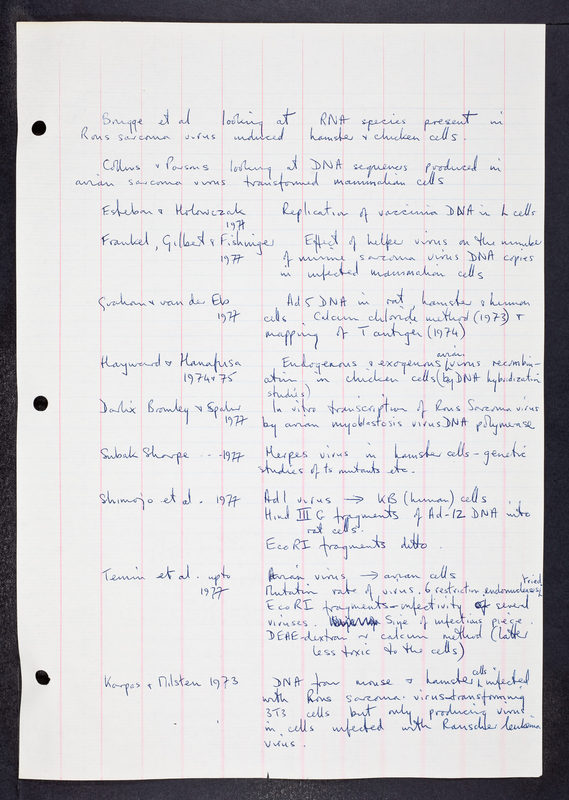 Brugge et al looking at RNA species present in
Rous sarcoma virus induced hamster & chicken cells.
Collins & Parsons looking at DNA sequences produced in
avian sarcoma virus transformed mammalian cells
Esteban & Holowczak Replication of vaccinia DNA in L cells
1977
Frankel, Gilbert & Fishinger Effect of helper virus on the number
1977 of murine sarcoma virus DNA copies
in infected mammalian cells
Graham & van der Eb Ad 5 DNA in rat, hamster & human
1977 cells Calcium chloride method (1973) &
mapping of T antigen (1974)
Hayward & Hanafusa Endogenous & exogenous avian virus recombin-
1974 & 75 ation in chicken cells (by DNA hybridization
studies)
Darlix Bromley & Spahr In vitro transcription of Rous Sarcoma virus
1977 by avian myoblastosis virus DNA polymerase
Subak Sharpe --- 1977 Herpes virus in hamster cells - genetic
studies of ts mutants etc.
Shimojo et al. 1977 Ad1 virus → KB (human) cells
Hind III G fragments of Ad-12 DNA into
rat cells.
EcoRI fragments ditto.
Temin et al. upto Avian virus → avian cells
1977 Mutation rate of virus. 6 restriction endonucleases tried
EcoRI fragments - infectivity of several
viruses. Size of infectious piece.
DEAE-dextran ~ calcium method (latter
less toxic to the cells)
Karpas & Milstein 1973 DNA from mouse & hamster cells infected
with Rous sarcoma. virus transforming
3T3 cells but only producing virus
in cells infected with Rauscher leukemia
virus.